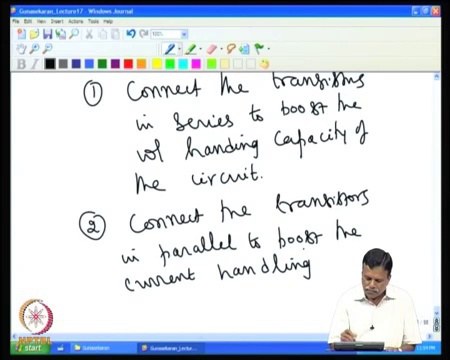 Gunasekaran_Lecture17 - Windows Journal
File Edit View Insert Actions Tools Help
100%
B I
① Connect the transistors
in series to boost the
vol handing capacity of
the circuit.
② Connect the transistors
in parallel to boost the
current handling
start
Gunasekaran
Gunasekaran_Lectu...